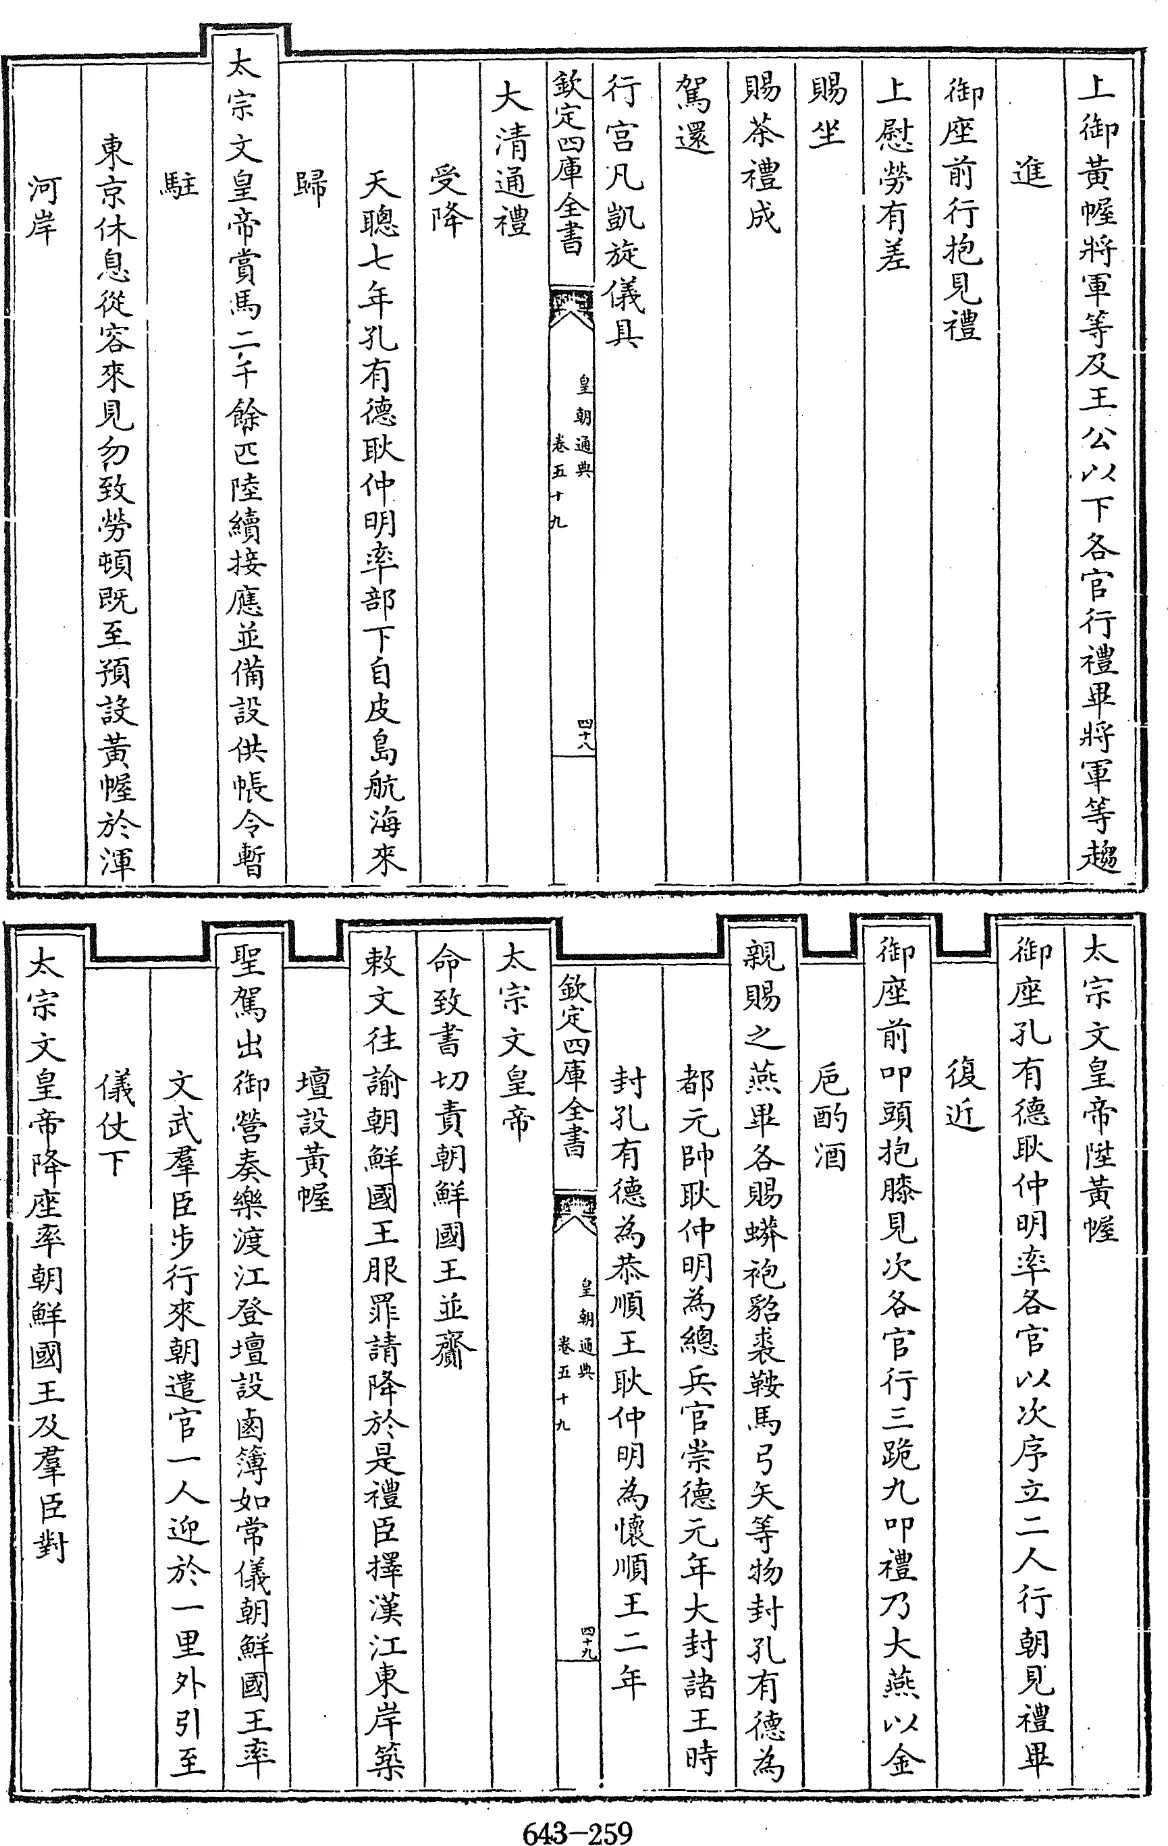 上御黃幄將軍等及王公以下各官行禮畢將軍等趨
進
御座前行抱見禮
上慰勞有差
賜坐
賜茶禮成
駕還
行宮凡凱旋儀具
欽定四庫全書
皇朝通典
卷五十九
四十八
大清通禮
受降
天聰七年孔有德耿仲明率部下自皮島航海來
歸
太宗文皇帝賞馬二千餘匹陸續接應並備設供帳令暫
駐
東京休息從容來見勿致勞頓既至預設黃幄於渾
河岸
太宗文皇帝陞黃幄
御座孔有德耿仲明率各官以次序立二人行朝見禮畢
復近
御座前叩頭抱膝見次各官行三跪九叩禮乃大燕以金
巵酌酒
親賜之燕畢各賜蟒袍貂裘鞍馬弓矢等物封孔有德為
都元帥耿仲明為總兵官崇德元年大封諸王時
封孔有德為恭順王耿仲明為懷順王二年
欽定四庫全書
皇朝通典
卷五十九
四十九
太宗文皇帝
命致書切責朝鮮國王並齎
敕文往諭朝鮮國王服罪請降於是禮臣擇漢江東岸築
壇設黃幄
聖駕出御營奏樂渡江登壇設鹵簿如常儀朝鮮國王率
文武羣臣步行來朝遣官一人迎於一里外引至
儀仗下
太宗文皇帝降座率朝鮮國王及羣臣對
643-259